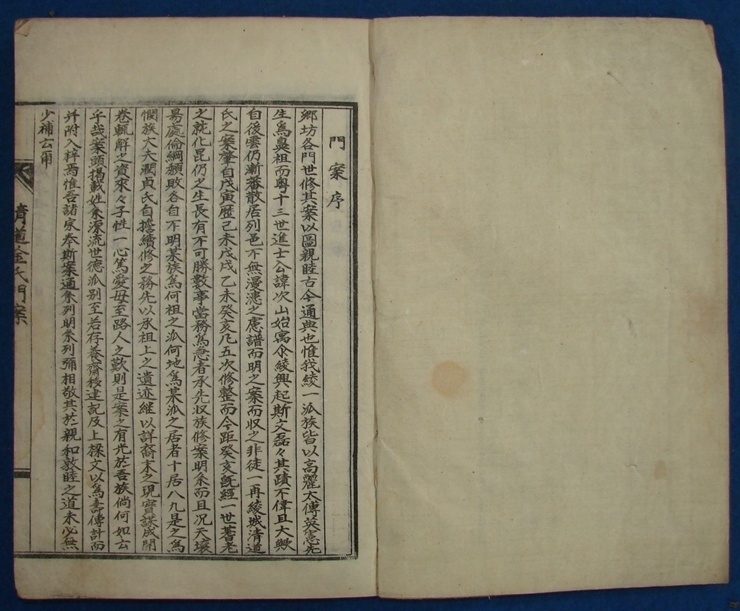 門案序
鄉坊各門世修其案以圖親睦古今通典也惟我綾一派族皆以高麗太傅英憲先
生爲鼻祖而粤十三世進士公諱次山始寓介綾興起斯文磊々其蹟不偉且大歟
自後雲仍漸蕃散居列邑不無漫漶之慮譜而明之案而收之非徒一再綾城淸道
氏之案肇自戊寅歷己未戊戌乙未癸亥凡五次修整而今距癸亥旣經一世耆老
之就化昆仍之生長有不可勝數事當務爲急者承先収族修案明系而且况天壤
易處倫綱頹敗各自不明某族爲何祖之派何地爲某派之居者十居八九是之爲
憫族大夫潤貞氏自擔續修之務先以承祖上之遺迹継以詳裔末之現實談成開
卷輒解之資來々子性一心篤愛毋至路人之歎則是案之有光於吾族倘何如云
乎哉案頭揭載姓系源流世德派别至若存養齋移建記及上樑文以爲壽傳計而
幷附入梓焉惟吾諸家奉斯案通系列明系列彌相敬其於親和敦睦之道未必無
少補云爾
淸道金氏門案